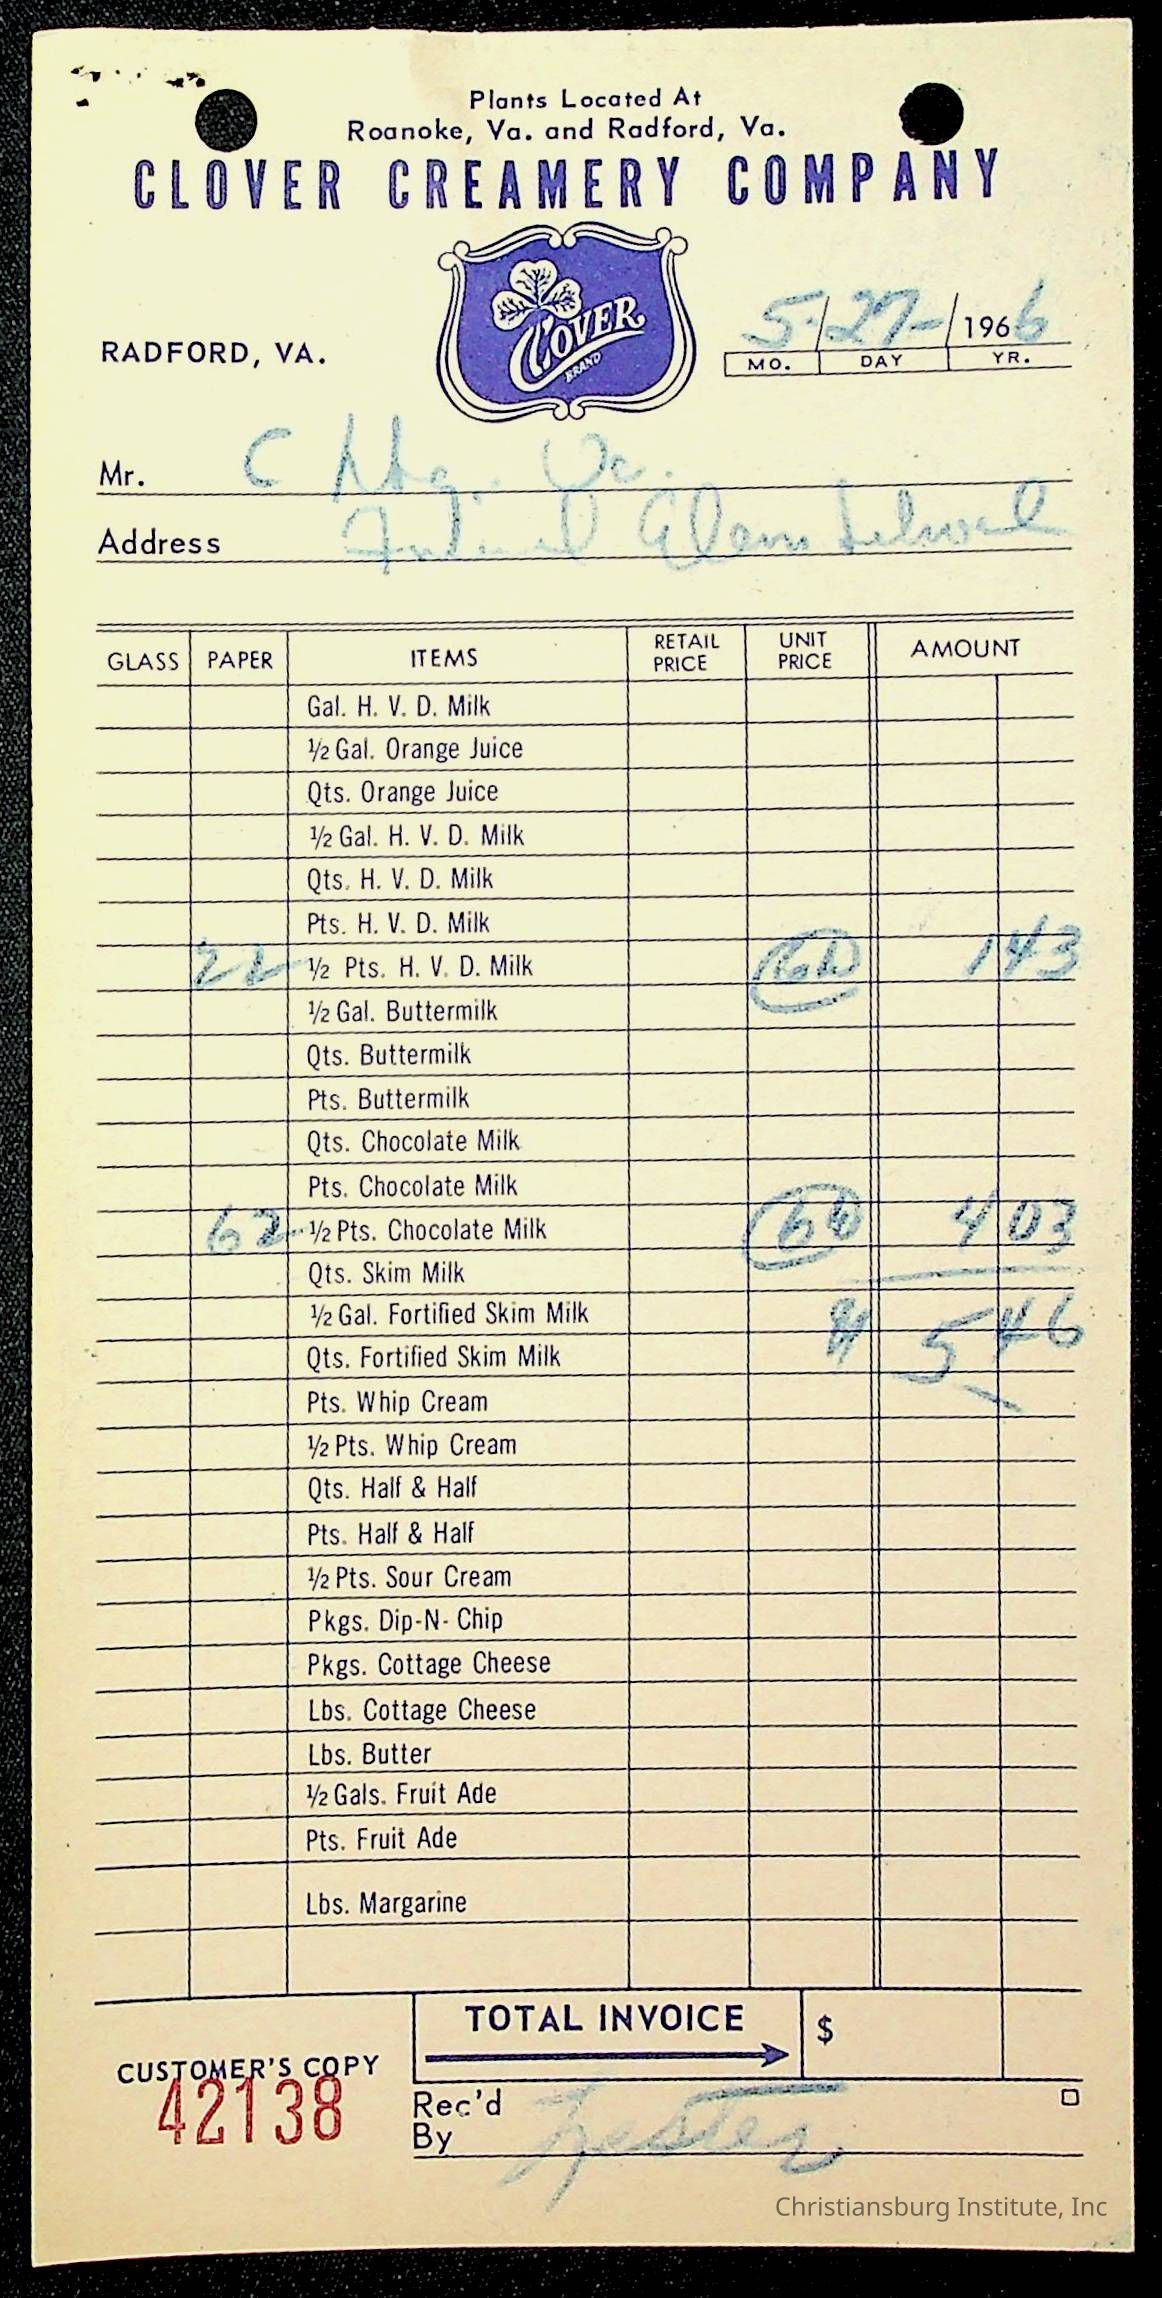 Plants Located At
Roanoke, Va. and Radford, Va.
CLOVER CREAMERY COMPANY
CLOVER
BRAND
RADFORD, VA.
5/27-/1966
MO. DAY YR.
Mr. C Hbg. Va.
Address Elem School
GLASS PAPER ITEMS RETAIL PRICE UNIT PRICE AMOUNT
Gal. H. V. D. Milk
½ Gal. Orange Juice
Qts. Orange Juice
½ Gal. H. V. D. Milk
Qts. H. V. D. Milk
Pts. H. V. D. Milk
22 ½ Pts. H. V. D. Milk 143
½ Gal. Buttermilk
Qts. Buttermilk
Pts. Buttermilk
Qts. Chocolate Milk
Pts. Chocolate Milk
62 ½ Pts. Chocolate Milk 403
Qts. Skim Milk
½ Gal. Fortified Skim Milk 546
Qts. Fortified Skim Milk
Pts. Whip Cream
½ Pts. Whip Cream
Qts. Half & Half
Pts. Half & Half
½ Pts. Sour Cream
Pkgs. Dip-N-Chip
Pkgs. Cottage Cheese
Lbs. Cottage Cheese
Lbs. Butter
½ Gals. Fruit Ade
Pts. Fruit Ade
Lbs. Margarine
TOTAL INVOICE $
CUSTOMER'S COPY
42138
Rec'd
By
Christiansburg Institute, Inc